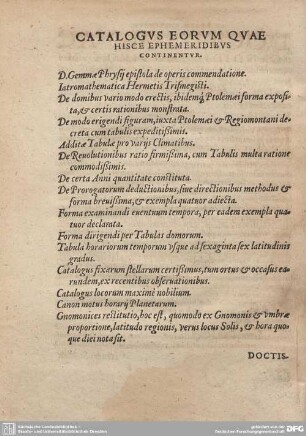 CATALOGVS EORVM QVAE
HISCE EPHEMERIDIBVS
CONTINENTVR.
D. Gemmæ Phrysij epistola de operis commendatione.
Iatromathematica Hermetis Trismegisti.
De domibus vario modo erectis, ibidemq́; Ptolemæi forma exposi-
ta, & certis rationibus monstrata.
De modo erigendi figuram, iuxta Ptolemæi & Regiomontani de-
creta cum tabulis expeditissimis.
Additæ Tabulæ pro varijs Climatibus.
De Reuolutionibus ratio firmissima, cum Tabulis multa ratione
commodissimis.
De certa Anni quantitate constituta.
De Prorogatorum deductionibus, siue directionibus methodus &
forma breuissima, & exempla quatuor adiecta.
Forma examinandi euentuum tempora, per eadem exempla qua-
tuor declarata.
Forma dirigendi per Tabulas domorum.
Tabula horariorum temporum vsque ad sexaginta sex latitudinis
gradus.
Catalogus fixarum stellarum certissimus, tum ortus & occasus ea-
rundem, ex recentibus obseruationibus.
Catalogus locorum maximè nobilium.
Canon motus horarij Planetarum.
Gnomonices restitutio, hoc est, quomodo ex Gnomonis & vmbræ
proportione, latitudo regionis, verus locus Solis, & hora quo-
que diei nota sit.
DOCTIS.
Sächsische Landesbibliothek -
Staats- und Universitätsbibliothek Dresden
gefördert von der
Deutschen Forschungsgemeinschaft
DFG